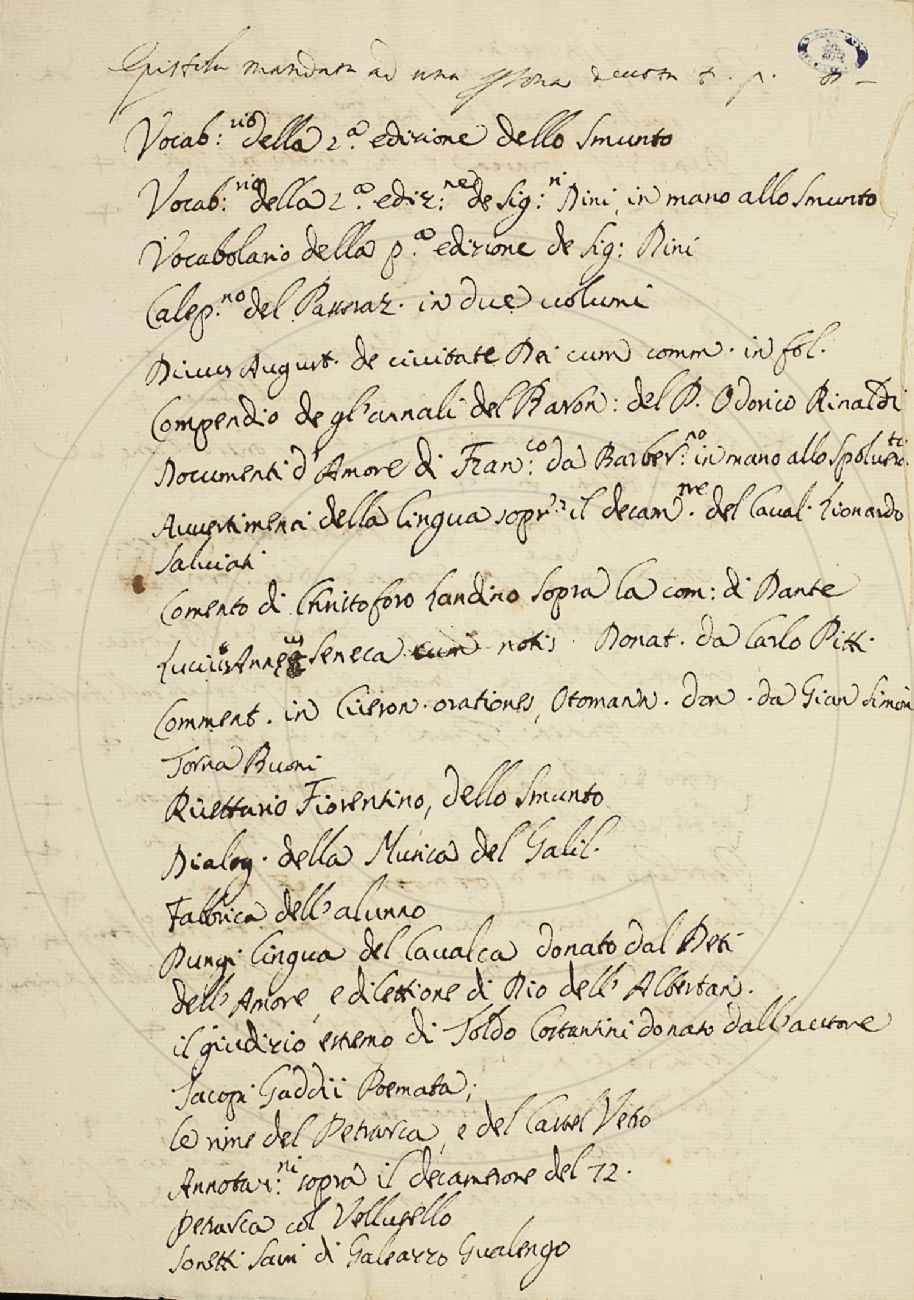 Epistola mandata ad una
Vocab:rio della 2.a edizione dello Smunto
Vocab:rio della 2.a ediz:ne de Sig:ri Dini, in mano allo Smunto
Vocabolario della p.a edizione de Sig: Dini
Calep.no del Passeraz. in due uolumi
Diuus August. de ciuitate Dei cum comm. in fol.
Compendio de gl'annali del Baron: del P. Odorico Rinaldi
Documenti d'Amore di Fran:co da Barber:no in mano allo
Auuertimenti della lingua sopr: il decam:ne. del Caual. Lionardo
Saluiati
Comento di Christoforo Landino sopra la com: di Dante
Lucius Anneus Seneca cum notis Donat. da Carlo Pitti
Comment. in Ciceron. orationes, Otomann. don. da Gian Simon
Torna Buoni
Ricettario Fiorentino, dello Smunto
Dialog. della Musica del Galil.
Fabbrica dell'alunno
Pungi lingua del Caualca donato dal Deti
dell'Amore, e dilettione di Dio dell'Albertan.
il giudizio estremo di Toldo Costantini donato dall'autore
Jacopi Gaddii Poemata;
le rime del Petrarca, e del Castel Vetro
Annotaz:ni sopra il decamerone del 72.
Petrarca col Vellutello
Sonetti Sacri di Galeazzo Gualengo